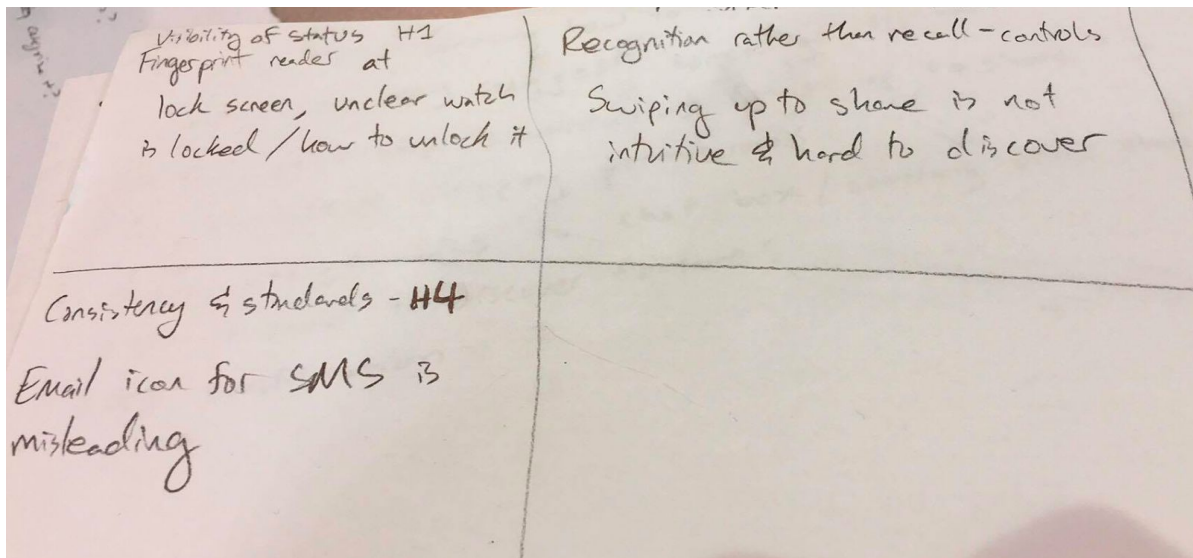 Visibility of status H1
Fingerprint reader at
lock screen, unclear watch
is locked / how to unlock it
Recognition rather than recall - controls
Swiping up to share is not
intuitive & hard to discover
Consistency & standards - H4
Email icon for SMS is
misleading